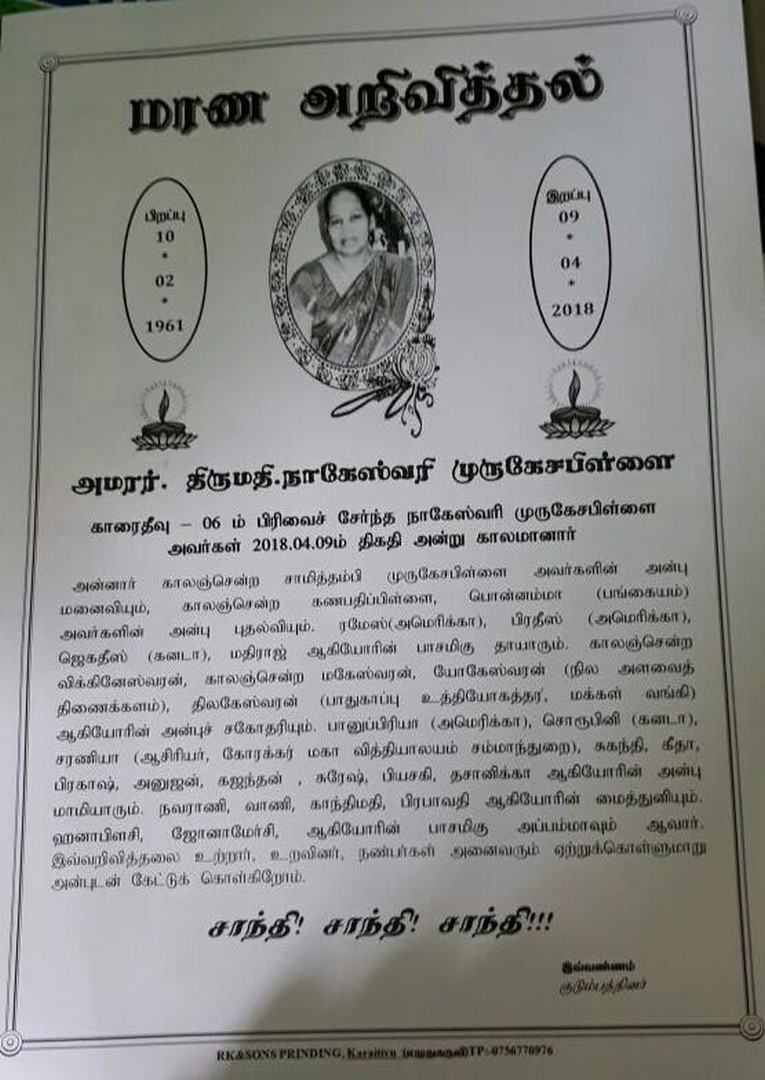 மரண அறிவித்தல்
பிறப்பு
10
*
02
*
1961
இறப்பு
09
*
04
*
2018
அமரர். திருமதி.நாகேஸ்வரி முருகேசபிள்ளை
காரைதீவு – 06 ம் பிரிவைச் சேர்ந்த நாகேஸ்வரி முருகேசபிள்ளை
அவர்கள் 2018.04.09ம் திகதி அன்று காலமானார்
அன்னார் காலஞ்சென்ற சாமித்தம்பி முருகேசபிள்ளை அவர்களின் அன்பு
மனைவியும், காலஞ்சென்ற கணபதிப்பிள்ளை, பொன்னம்மா (பங்கையம்)
அவர்களின் அன்பு புதல்வியும். ரமேஸ்(அமெரிக்கா), பிரதீஸ் (அமெரிக்கா),
ஜெகதீஸ் (கனடா), மதிராஜ் ஆகியோரின் பாசமிகு தாயாரும். காலஞ்சென்ற
விக்கினேஸ்வரன், காலஞ்சென்ற மகேஸ்வரன், யோகேஸ்வரன் (நில அளவைத்
திணைக்களம்), திலகேஸ்வரன் (பாதுகாப்பு உத்தியோகத்தர், மக்கள் வங்கி)
ஆகியோரின் அன்புச் சகோதரியும். பானுப்பிரியா (அமெரிக்கா), சொரூபினி (கனடா),
சரணியா (ஆசிரியர், கோரக்கர் மகா வித்தியாலயம் சம்மாந்துறை), சுகந்தி, கீதா,
பிரகாஷ், அனுஜன், கஜந்தன் , சுரேஷ், பியசகி, தசானிக்கா ஆகியோரின் அன்பு
மாமியாரும். நவராணி, வாணி, காந்திமதி, பிரபாவதி ஆகியோரின் மைத்துனியும்.
ஹனாபிளசி, ஜோனாமேர்சி, ஆகியோரின் பாசமிகு அப்பம்மாவும் ஆவார்.
இவ்வறிவித்தலை உற்றார், உறவினர், நண்பர்கள் அனைவரும் ஏற்றுக்கொள்ளுமாறு
அன்புடன் கேட்டுக் கொள்கிறோம்.
சாந்தி! சாந்தி! சாந்தி!!!
இவ்வண்ணம்
குடும்பத்தினர்
RK&SONS PRINDING, Karaitivu TP:-0756770976